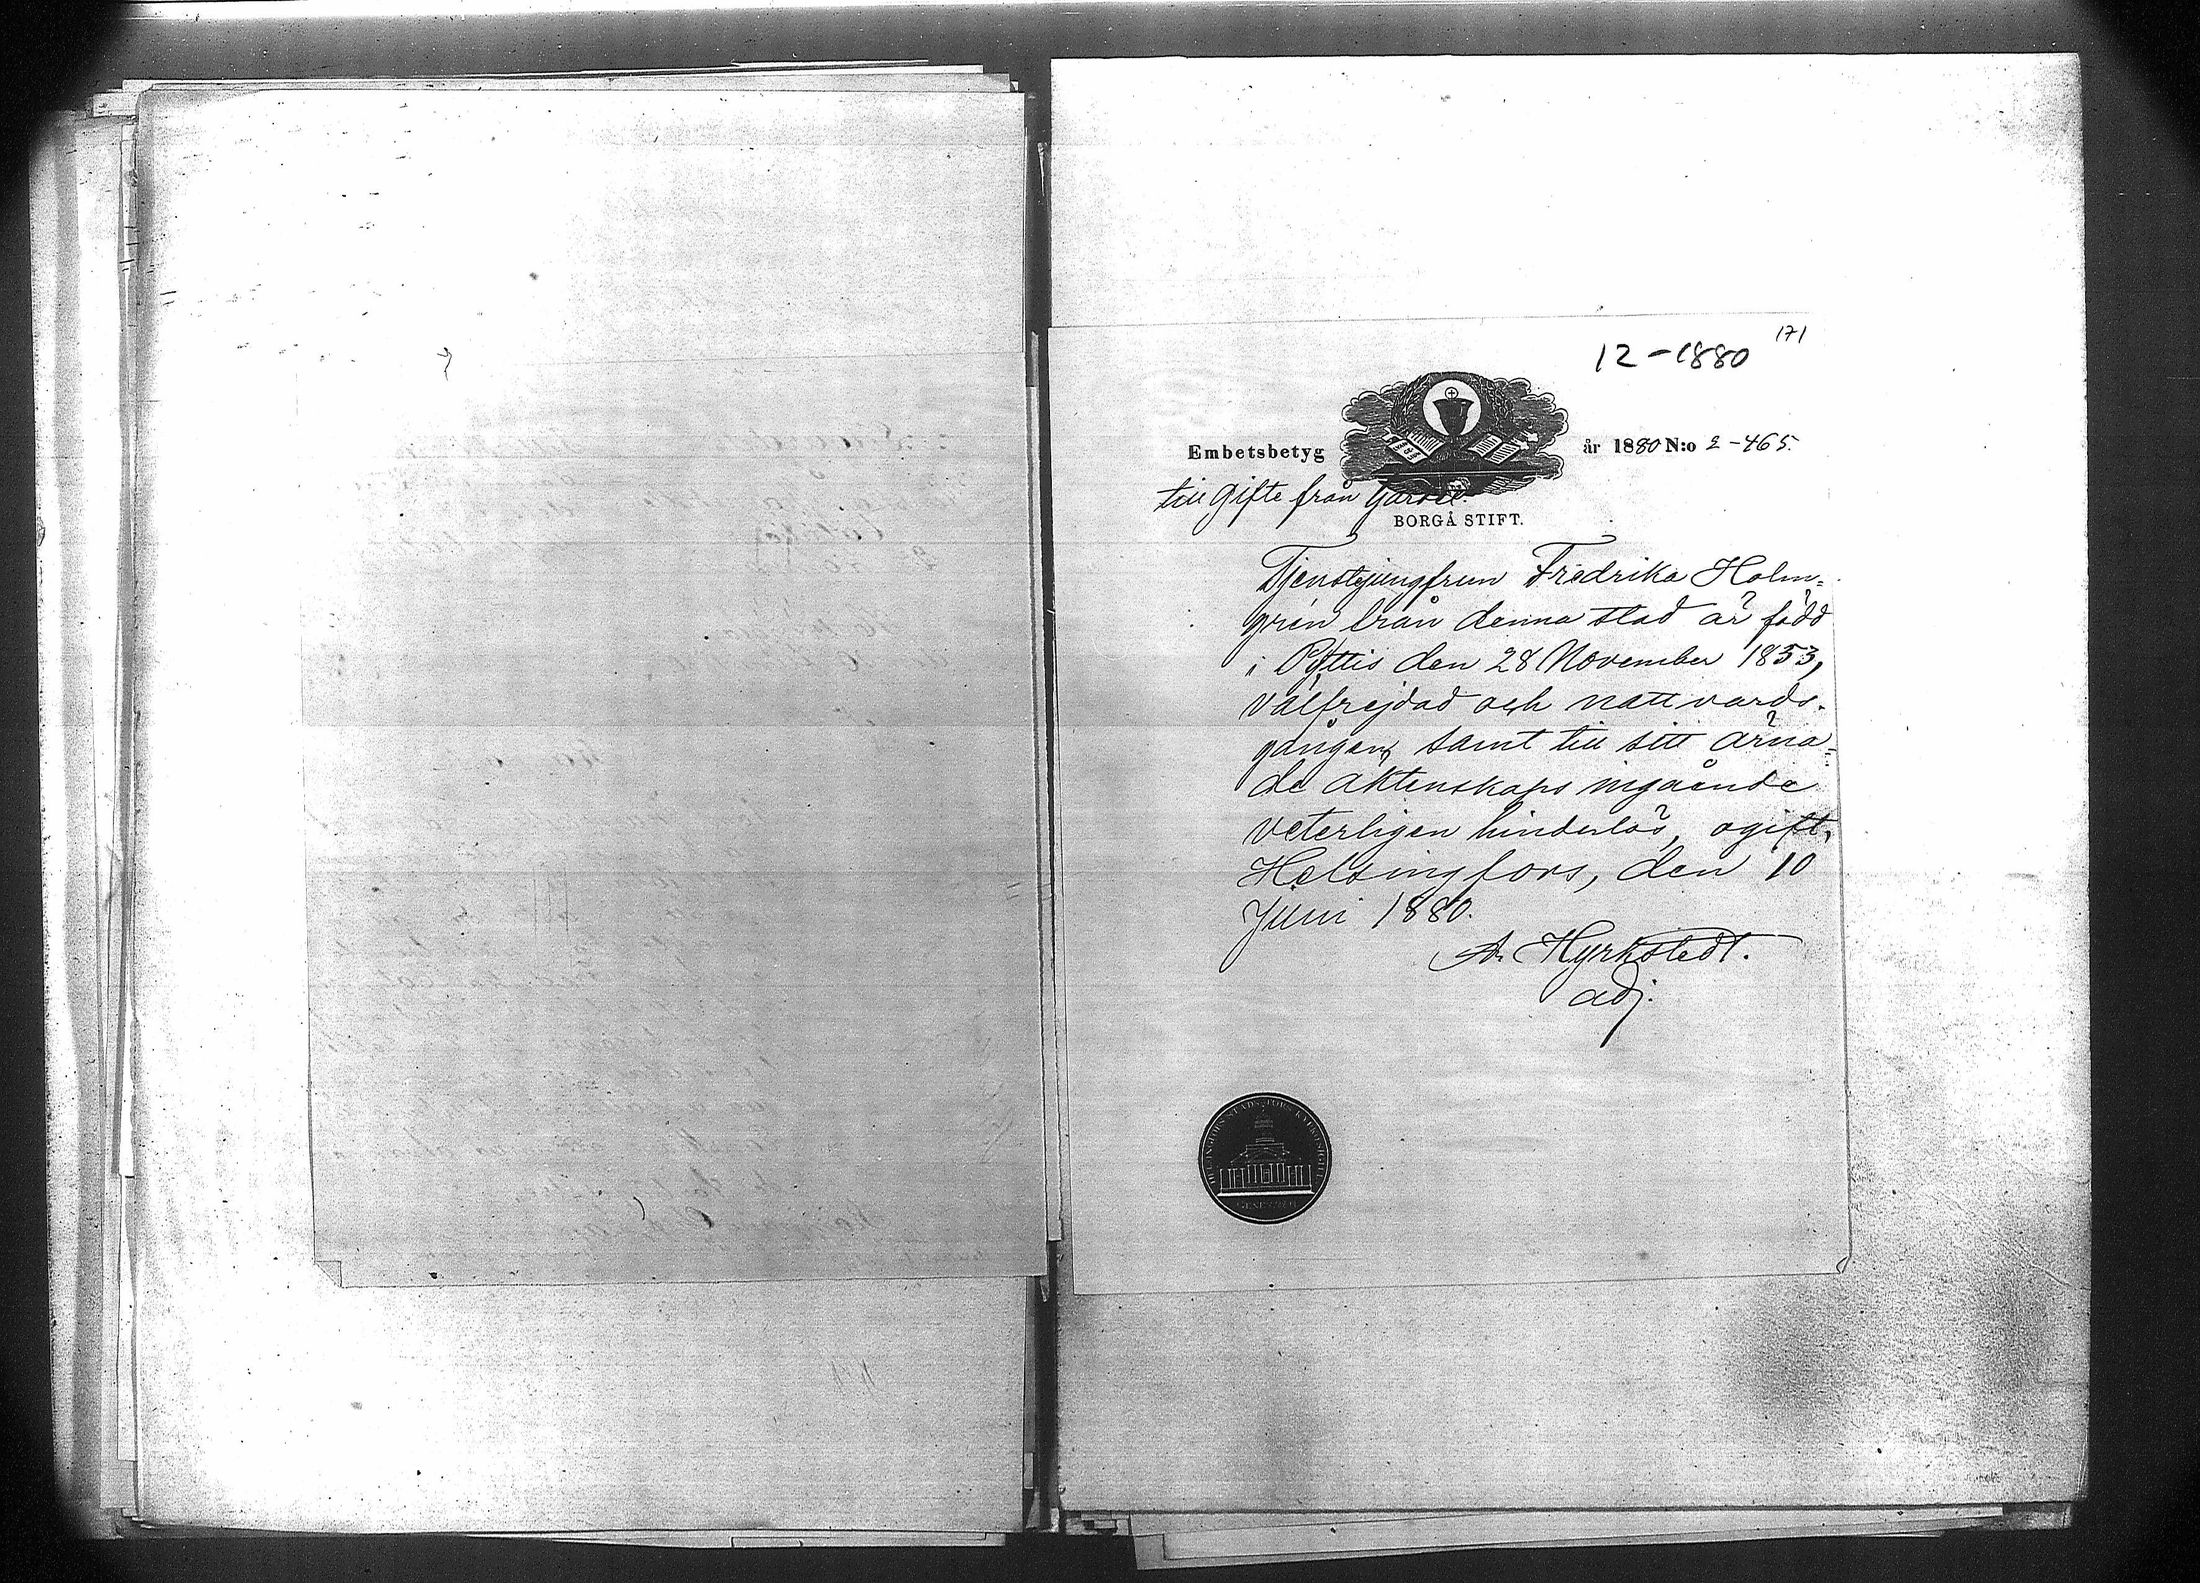 171
12-1880
Embetsbetyg år 1880 N:o 2-465.
till gifte från
BORGÅ STIFT.
Tjenstejungfrun Fredrika Holm=
grén från denna stad är född
i Pyttis den 28 November 1853,
välfrejdad och nattvards-
gången, samt till sitt ärna=
de äktenskaps ingående
veterligen hinderlös, ogift.
Helsingfors, den 10
Juni 1880.
A. Hyrkstedt.
adj.